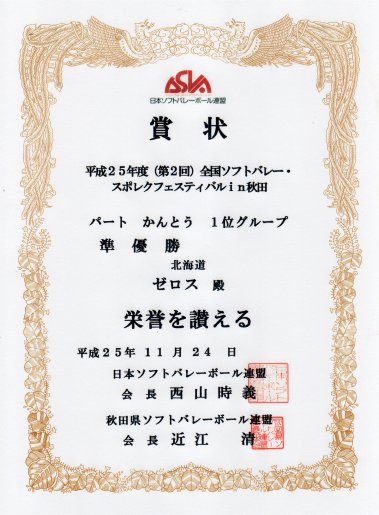 JSVA
日本ソフトバレーボール連盟
賞状
平成25年度（第2回）全国ソフトバレー・
スポレクフェスティバルin秋田
パート かんとう 1位グループ
準優勝
北海道
ゼロス 殿
栄誉を讃える
平成25年 11月 24日
日本ソフトバレーボール連盟
会長 西山時義
秋田県ソフトバレーボール連盟
会長 近江 清